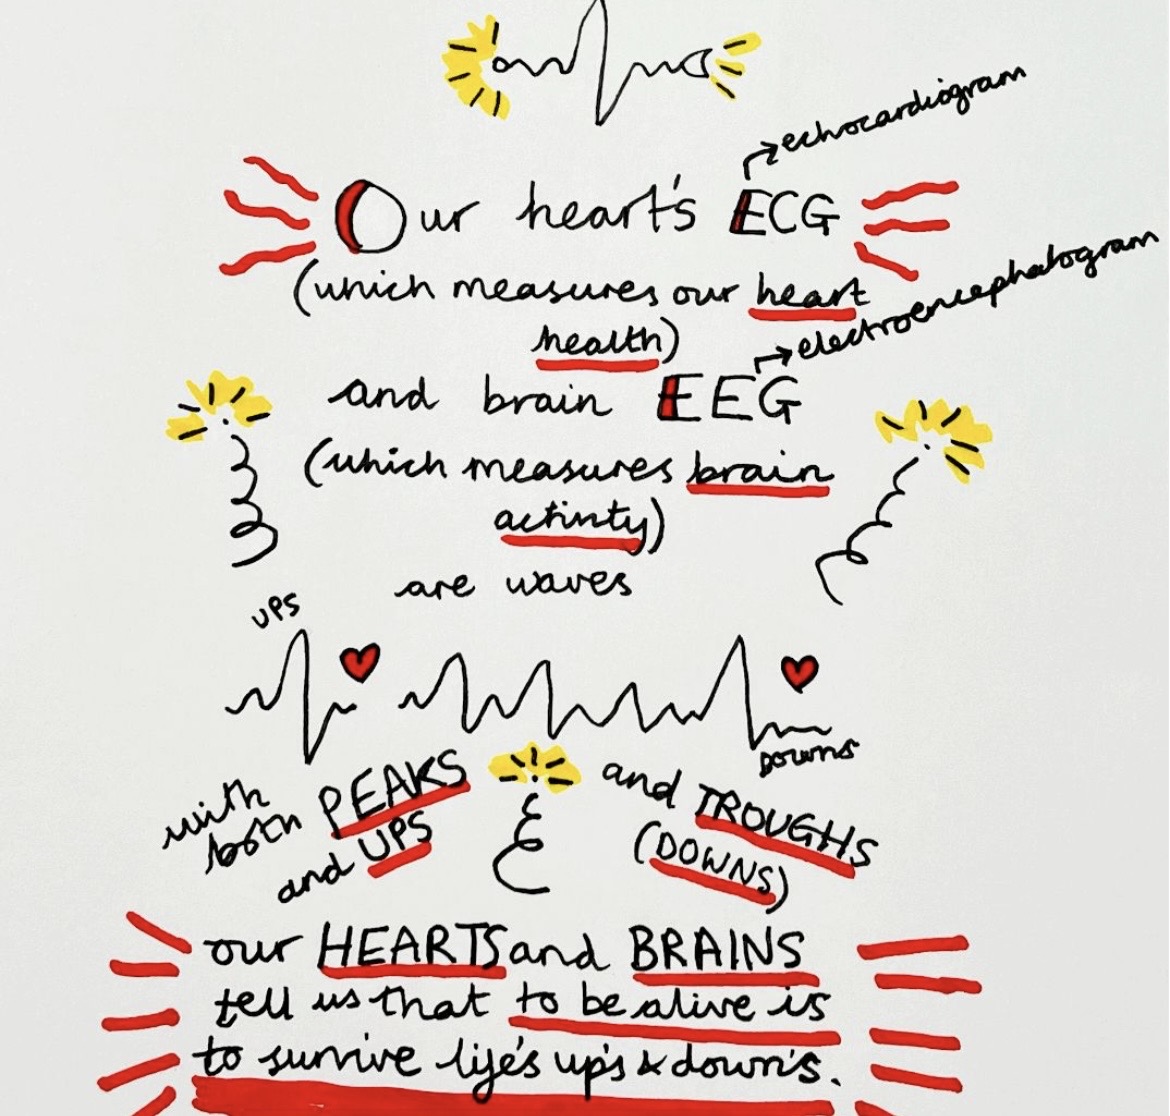 echocardiogram
Our heart's ECG
(which measures our heart
health)
electroencephalogram
and brain EEG
(which measures brain
activity)
are waves
UPS
DOWNS
with both PEAKS
and UPS
and TROUGHS
(DOWNS)
our HEARTS and BRAINS
tell us that to be alive is
to survive life's up's & down's.